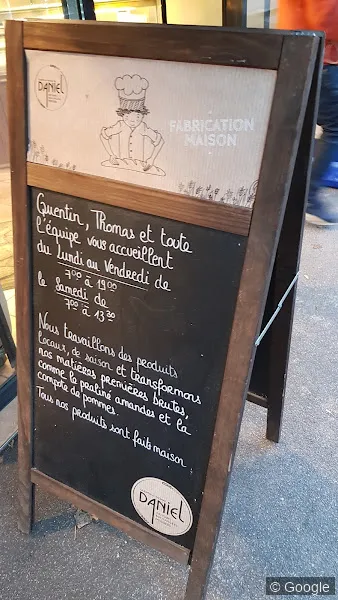 DANIEL
FABRICATION
MAISON
Quentin, Thomas et toute
l'équipe vous accueillent
du Lundi au Vendredi de
7°° à 19°°
le Samedi de
7°° à 13³⁰
Nous travaillons des produits
locaux, de saison et transformons
nos matières premières brutes,
comme le praliné amandes et la
compote de pommes.
Tous nos produits sont faits maison
DANIEL
© Google